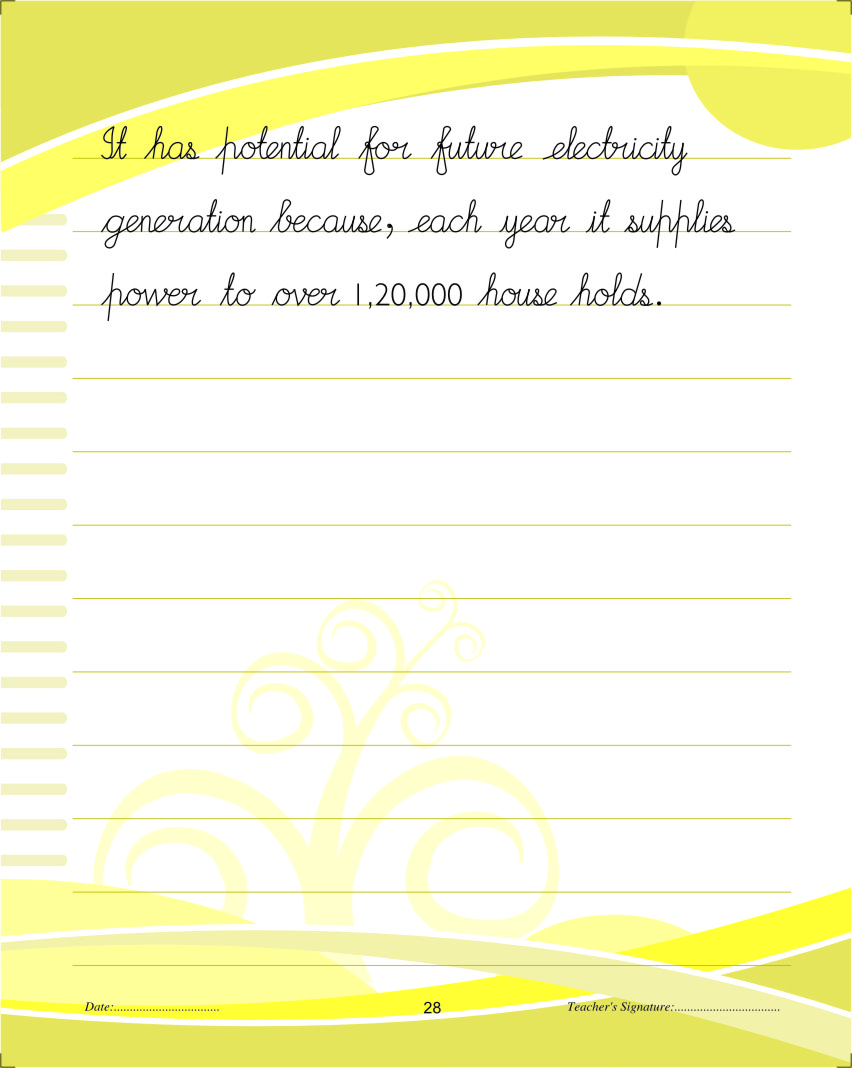 It has potential for future electricity
generation because, each year it supplies
power to over 1,20,000 house holds.
Date:.................................
28
Teacher's Signature:.................................